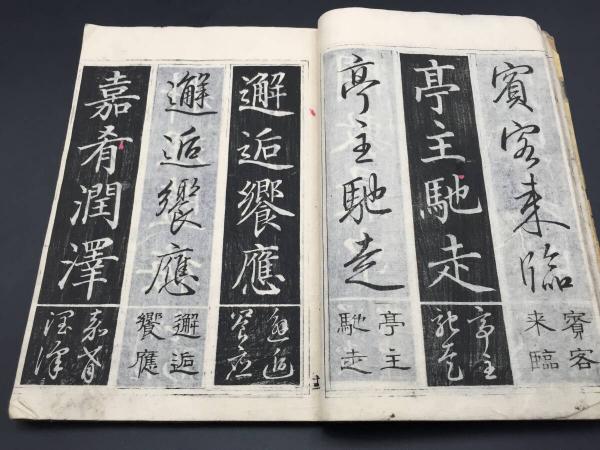 賓客来臨
賓客
来臨
亭主馳走
亭主
馳走
亭主馳走
亭主
馳走
邂逅饗應
邂逅
饗應
邂逅饗應
邂逅
饗應
嘉肴潤澤
嘉肴
潤澤